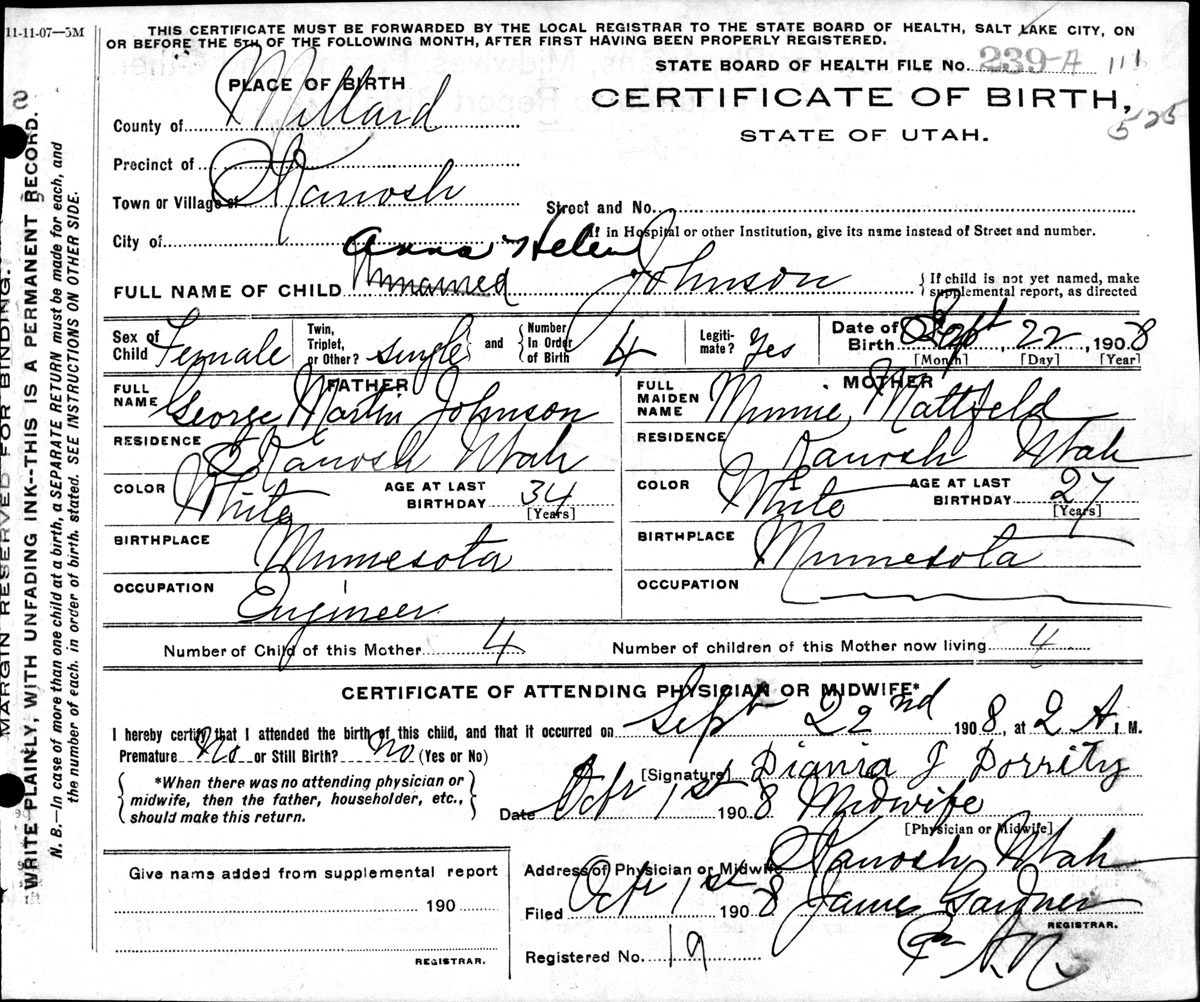 11-11-07—5M
THIS CERTIFICATE MUST BE FORWARDED BY THE LOCAL REGISTRAR TO THE STATE BOARD OF HEALTH, SALT LAKE CITY, ON
OR BEFORE THE 5TH OF THE FOLLOWING MONTH, AFTER FIRST HAVING BEEN PROPERLY REGISTERED.
STATE BOARD OF HEALTH FILE NO. 239-A 111
PLACE OF BIRTH
CERTIFICATE OF BIRTH,
525
STATE OF UTAH.
County of Millard
Precinct of
Town or Village of Kanosh
Street and No.
City of
If in Hospital or other Institution, give its name instead of Street and number.
Anna Helen
FULL NAME OF CHILD Unnamed Johnson { If child is not yet named, make supplemental report, as directed
Sex of Child Female Twin, Triplet, or Other? single and Number In Order of Birth 4 Legitimate? Yes Date of Birth Sept 22, 1908
[Month] [Day] [Year]
FATHER MOTHER
FULL NAME George Martin Johnson FULL MAIDEN NAME Minnie Mattfeld
RESIDENCE Kanosh Utah RESIDENCE Kanosh Utah
COLOR White AGE AT LAST BIRTHDAY 34 [Years] COLOR White AGE AT LAST BIRTHDAY 27 [Years]
BIRTHPLACE Minnesota BIRTHPLACE Minnesota
OCCUPATION Engineer OCCUPATION
Number of Child of this Mother 4 Number of children of this Mother now living 4
CERTIFICATE OF ATTENDING PHYSICIAN OR MIDWIFE*
I hereby certify that I attended the birth of this child, and that it occurred on Sept 22nd 1908, at 2 A. M.
Premature No or Still Birth? No (Yes or No)
*When there was no attending physician or
midwife, then the father, householder, etc.,
should make this return.
[Signature]
Date 1st 1908 Midwife
[Physician or Midwife]
Address of Physician or Midwife Kanosh Utah
Filed 1st 1908 James Gardner
REGISTRAR.
Registered No. 19
Give name added from supplemental report
190
REGISTRAR.
MARGIN RESERVED FOR BINDING.
WRITE PLAINLY, WITH UNFADING INK--THIS IS A PERMANENT RECORD.
N. B.—In case of more than one child at a birth, a SEPARATE RETURN must be made for each, and
the number of each, in order of birth, stated. SEE INSTRUCTIONS ON OTHER SIDE.